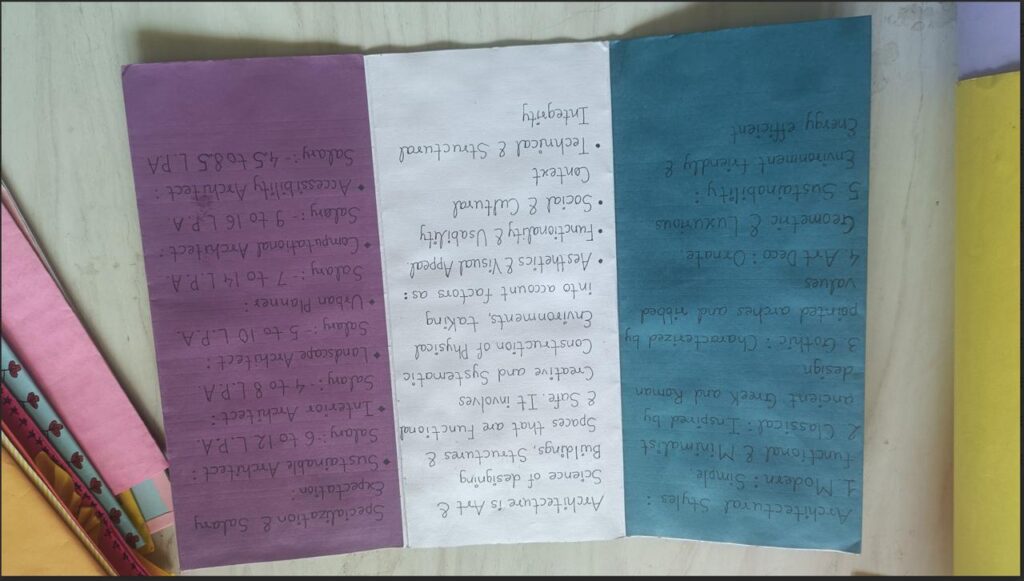 Architectural Styles :
1. Modern : Simple,
functional & Minimalist
2. Classical : Inspired by
ancient Greek and Roman
design
3. Gothic : Characterized by
pointed arches and ribbed
values
4. Art Deco : Ornate,
Geometric & Luxurious
5. Sustainability :
Environment friendly &
Energy efficient
Architecture is Art &
Science of designing
Buildings, Structures &
Spaces that are Functional
& Safe. It involves
Creative and Systematic
Construction of Physical
Environments, taking
into account factors as :
• Aesthetics & Visual Appeal
• Functionality & Usability
• Social & Cultural
Context
• Technical & Structural
Integrity
Specialization & Salary
Expectation :
• Sustainable Architect :
Salary :- 6 to 12 L.P.A.
• Interior Architect :
Salary :- 4 to 8 L.P.A.
• Landscape Architect :
Salary :- 5 to 10 L.P.A.
• Urban Planner :
Salary :- 7 to 14 L.P.A
• Computational Architect :
Salary :- 9 to 16 L.P.A
• Accessibility Architect :
Salary :- 4.5 to 8.5 L.P.A